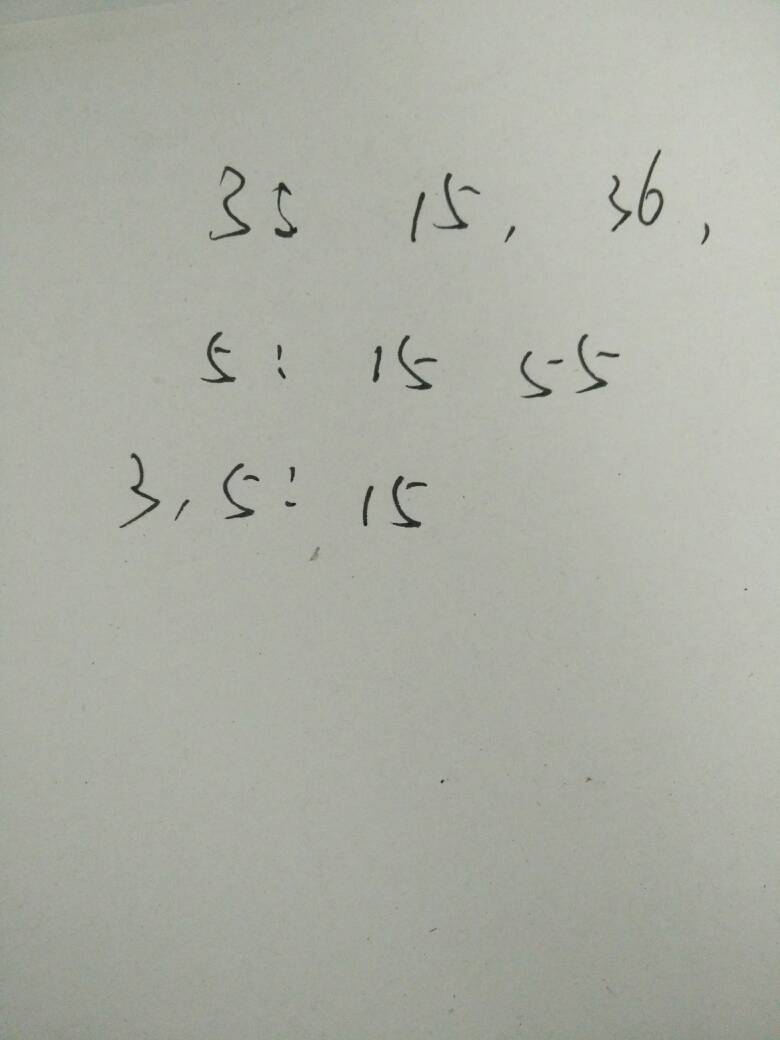 35 15, 36,
5: 15 55
3, 5: 15